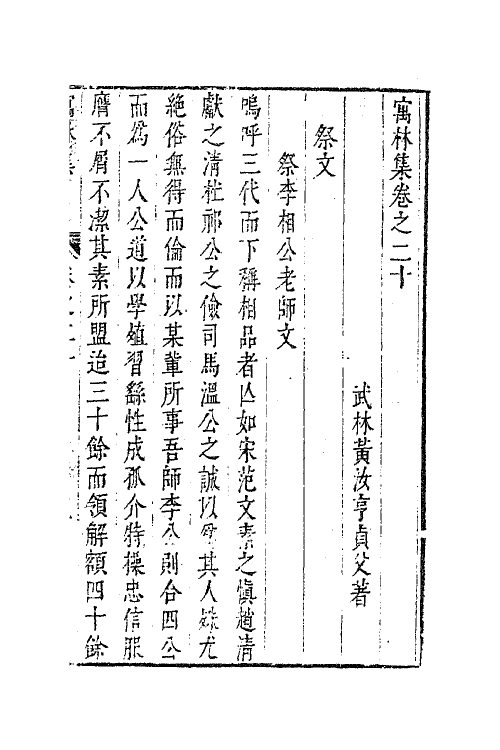 寓林集卷之二十
武林黃汝亨貞父著
祭文
祭李相公老師文
嗚呼三代而下稱相品者亾如宋范文素之慎趙清
獻之清杜祁公之儉司馬溫公之誠以爲其人殊尤
絶俗無得而倫而以某輩所事吾師李公則合四公
而爲一人公道以學殖習繇性成孤介特操忠信服
膺不屑不潔其素所盟迨三十餘而領解額四十餘